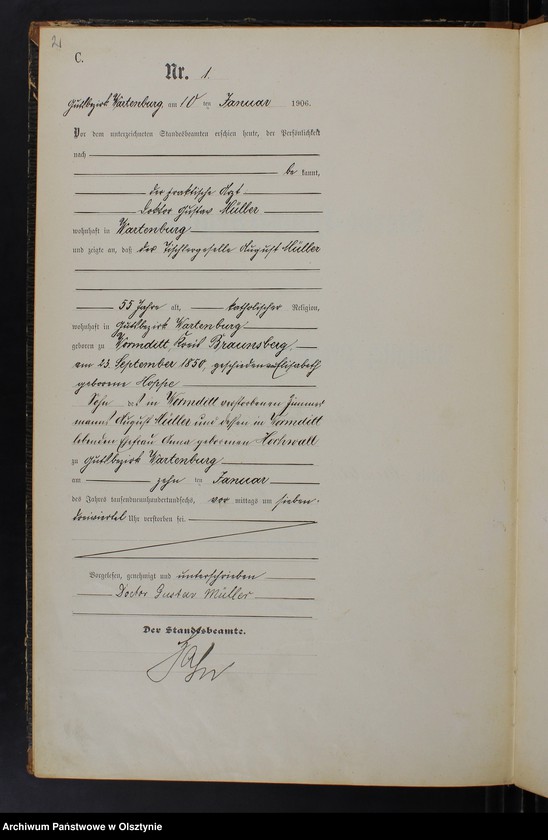 2
C.
Nr. 1.
Gutsbezirk Wartenburg, am 10 ten Januar 1906.
Vor dem unterzeichneten Standesbeamten erschien heute, der Persönlichkeit
nach
be kannt,
der praktische Arzt
Doktor Gustav Müller
wohnhaft in Wartenburg
und zeigte an, daß der Tischlergeselle August Müller
55 Jahre alt, katholischer Religion,
wohnhaft in Gutsbezirk Wartenburg
geboren zu Wormditt, Kreis Braunsberg
am 23. September 1850, geschieden von Elisabeth
geborene Hoppe
Sohn des in Wormditt verstorbenen Zimmer
manns August Müller und dessen in Wormditt
lebenden Ehefrau Anna geborenen Hochwall
zu Gutsbezirk Wartenburg
am zehn ten Januar
des Jahres tausendneunhundertundsechs, vor mittags um sieben
dreiviertel Uhr verstorben sei.
Vorgelesen, genehmigt und unterschrieben
Doctor Gustav Müller
Der Standesbeamte.
Archiwum Państwowe w Olsztynie